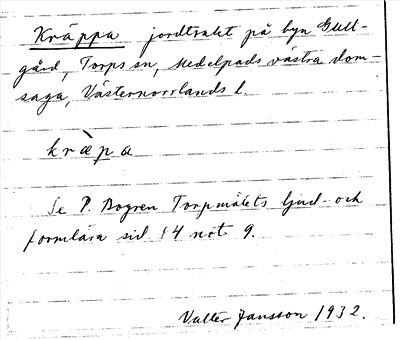 Kräppa jordtrakt på byn Gull-
gård, Torps sn, Medelpads västra dom-
saga, Västernorrlands l.
kræ̀pa
Se P. Bogren Torpmålets ljud- och
formlära sid 54 not 9.
Valter Jansson 1932.